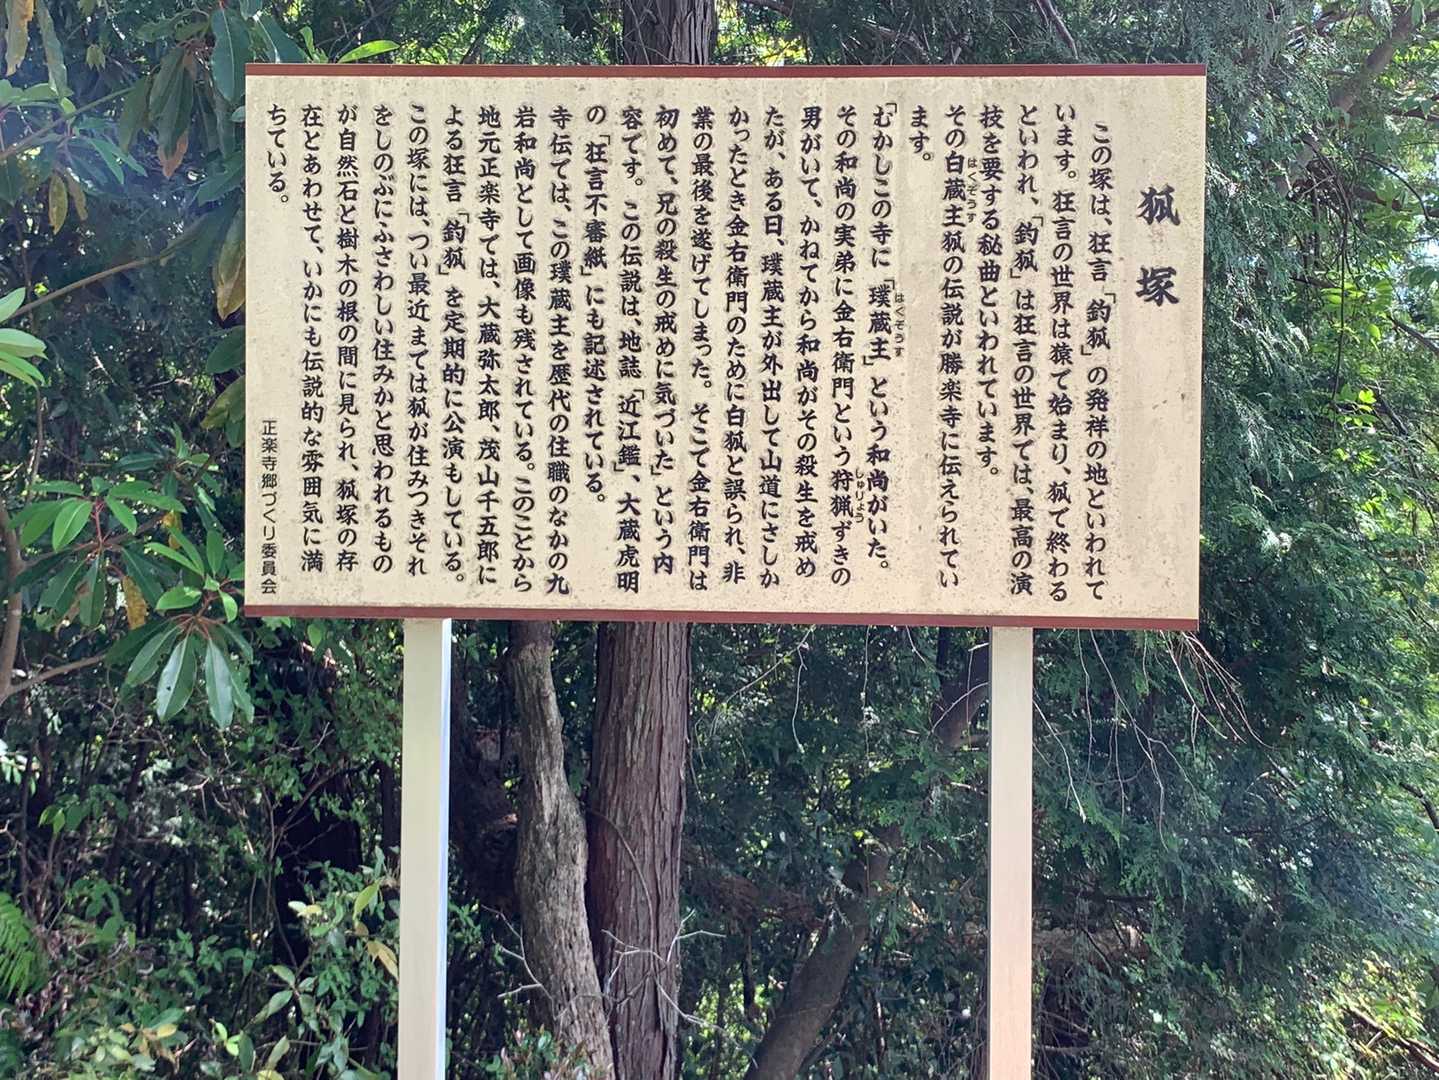 狐塚
この塚は、狂言「釣狐」の発祥の地といわれて
います。狂言の世界は猿で始まり、狐で終わる
といわれ、「釣狐」は狂言の世界では、最高の演
技を要する秘曲といわれています。
その白蔵主狐の伝説が勝楽寺に伝えられてい
はくぞうす
ます。
「むかしこの寺に「璞蔵主」という和尚がいた。
はくぞうす
その和尚の実弟に金右衛門という狩猟ずきの
しゅりょう
男がいて、かねてから和尚がその殺生を戒め
たが、ある日、璞蔵主が外出して山道にさしか
かったとき金右衛門のために白狐と誤られ、非
業の最後を遂げてしまった。そこで金右衛門は
初めて、兄の殺生の戒めに気づいた」という内
容です。この伝説は、地誌「近江鑑」、大蔵虎明
の「狂言不審紙」にも記述されている。
寺伝では、この璞蔵主を歴代の住職のなかの九
岩和尚として画像も残されている。このことから
地元正楽寺では、大蔵弥太郎、茂山千五郎に
よる狂言「釣狐」を定期的に公演もしている。
この塚には、つい最近までは狐が住みつきそれ
をしのぶにふさわしい住みかと思われるもの
が自然石と樹木の根の間に見られ、狐塚の存
在とあわせて、いかにも伝説的な雰囲気に満
ちている。
正楽寺郷づくり委員会